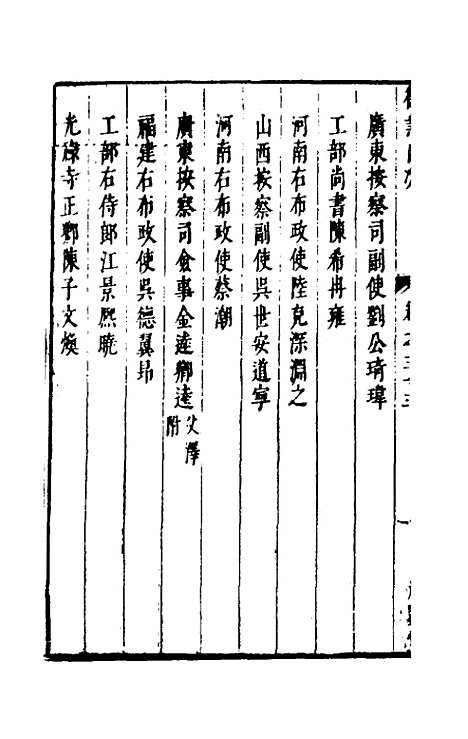 廣東按察司副使劉公琦瑋
工部尚書陳希冉雍
河南右布政使陸克深淵之
山西按察副使吳世安道寧
河南右布政使蔡潮
廣東按察司僉事金達卿逵父澤附
福建右布政使吳德翼昂
工部右侍郎江景熈曉
光祿寺正卿陳子文煥